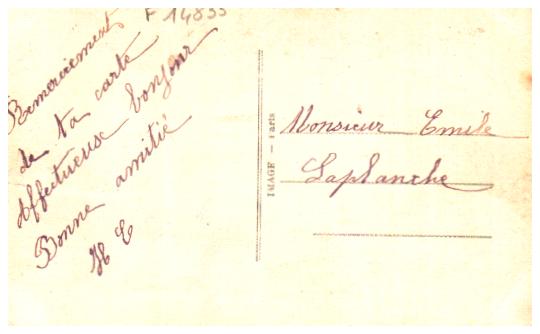 F 14855
Remerciement
de ta carte
Affectueuse bonjour
Bonne amitié
H E
IMAGE - Paris
Monsieur Emile
Laplanche